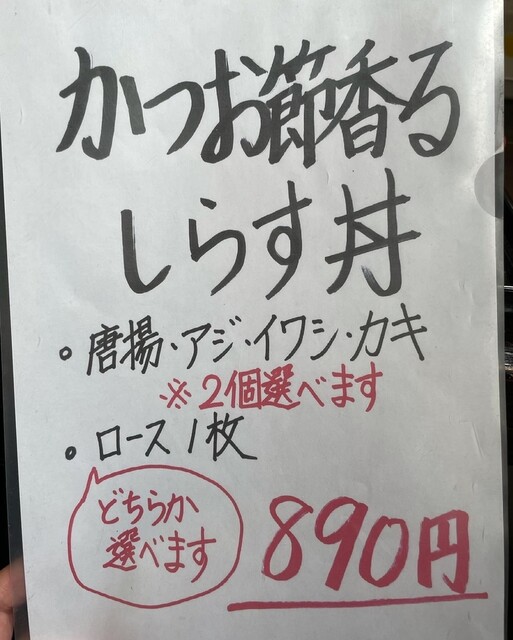 かつお節香る
しらす丼
。唐揚・アジ・イワシ・カキ
※2個選べます
。ロース1枚
どちらか
選べます
890円